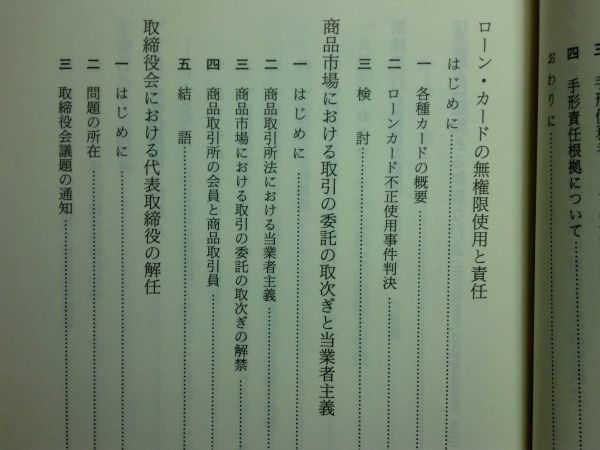 四 手形責任根拠について
おわりに
ローン・カードの無権限使用と責任
はじめに
一 各種カードの概要
二 ローンカード不正使用事件判決
三 検討
商品市場における取引の委託の取次ぎと当業者主義
一 はじめに
二 商品取引所法における当業者主義
三 商品市場における取引の委託の取次ぎの解禁
四 商品取引所の会員と商品取引員
五 結語
取締役会における代表取締役の解任
一 はじめに
二 問題の所在
三 取締役会議題の通知